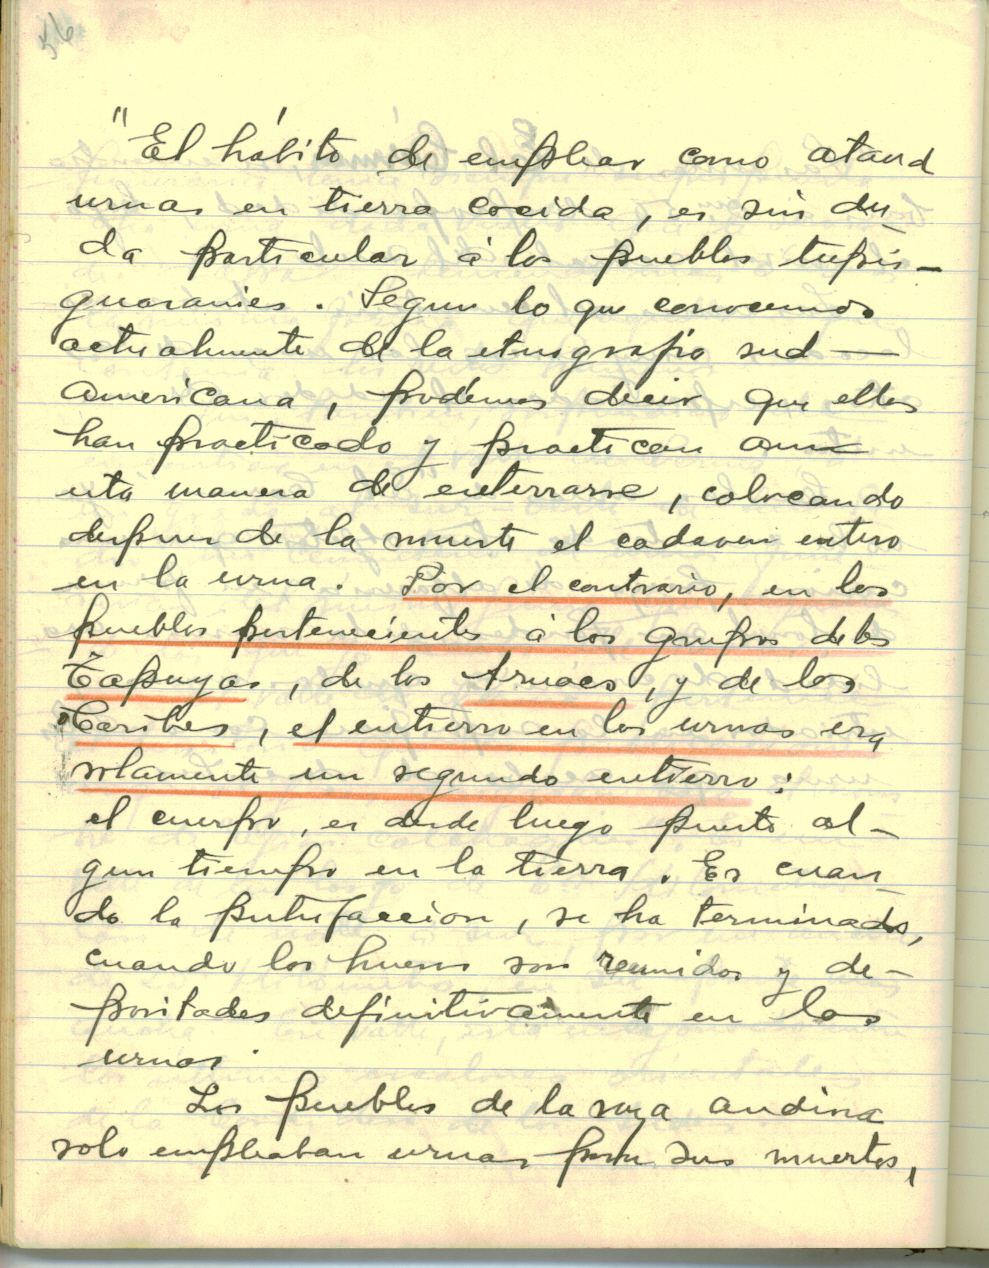 56
"El hábito de emplear como ataud
urnas en tierra cocida, es sin du-
da particular à los pueblos tupis-
guaranies. Segun lo que conocemos
actualmente de la etnografia sud-
americana, podémos decir que ellos
han practicado y practican aun
esta manera de enterrarse, colocando
despues de la muerte el cadaver entero
en la urna. Por el contrario, en los
pueblos pertenecientes à los grupos de los
Tapuyas, de los Aruacs, y de los
Caribes, el entierro en las urnas era
solamente un segundo entierro:
el cuerpo, es desde luego puesto al-
gun tiempo en la tierra. Es cuan-
do la putrefaccion, se ha terminado,
cuando los huesos son reunidos y de-
positados definitivamente en las
urnas.
Los pueblos de la raza andina
solo empleaban urnas para sus muertos,